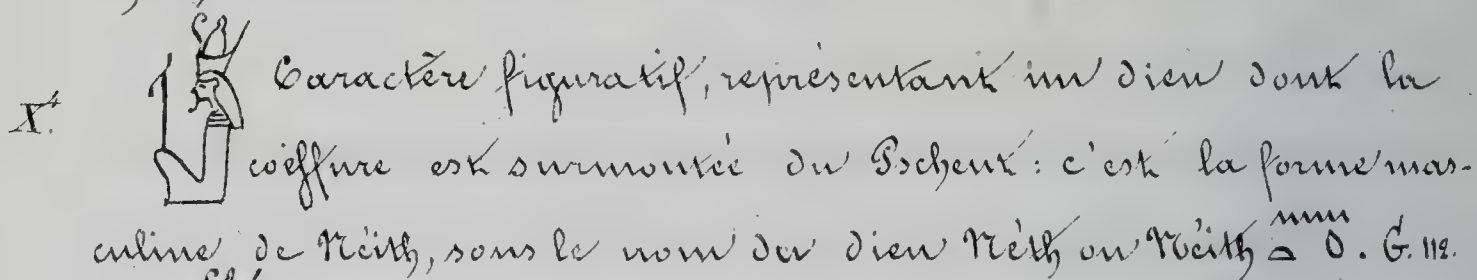 X⁴. Caractère figuratif, représentant un dieu dont la
coëffure est surmontée du Pschent : c'est la forme mas-
culine de Néith, sous le nom du dieu Néth ou Néith 𓈖𓏏 O. G. 112.